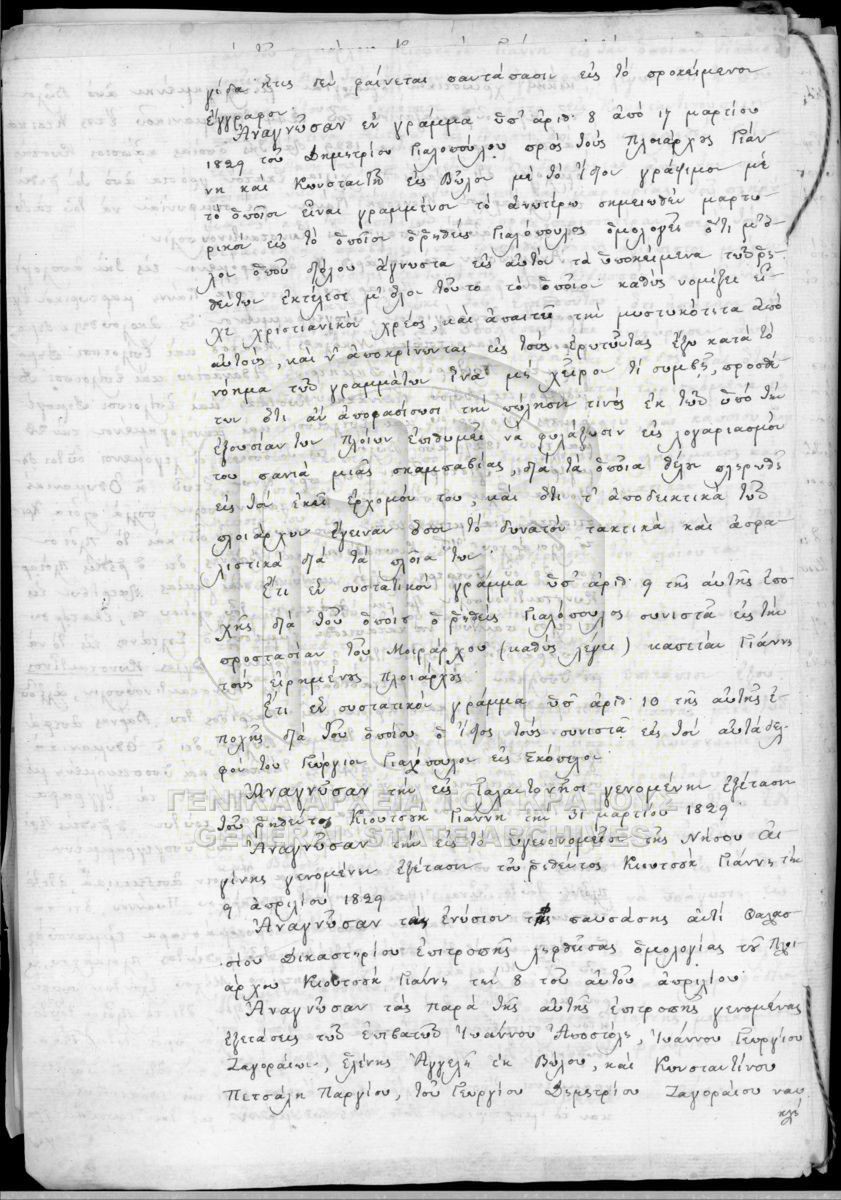 γίδα ἥτις δὲν φαίνεται παντάπασιν εἰς τὸ προκείμενον
ἔγγραφον.
Ἀναγνῶσαν ἓν γράμμα ὑπ' ἀριθ. 8 ἀπὸ 17 μαρτίου
1829 τοῦ Δημητρίου Γιαλοπούλου πρὸς τοὺς Πλοιάρχους Γιάν
νη καὶ Κωνσταντῆ εἰς Βῶλον μὲ τὸ ἴδιον γράψιμον μὲ
τὸ ὁποῖον εἶναι γραμμένον τὸ ἀνωτέρω σημειωθὲν μαρτυ
ρικὸν εἰς τὸ ὁποῖον ὁ ῥηθεὶς Γιαλόπουλος ὁμολογεῖ ὅτι μ' ὅ
λον ὁποῦ ὅλου ἄγνωστα εἰς αὐτὸν τὰ ὑποκείμενα τῶν ῥη
θέντων ἐκτέλεσε μ' ὅλον τοῦτο τὸ ὁποῖον καθὼς νομίζει εἶ
χε χριστιανικὸν χρέος, καὶ ἀπαιτεῖ τὴν μυστικότητα ἀπὸ
αὐτούς, καὶ ν' ἀποκρίνωνται εἰς τοὺς ἐρωτῶντας ἔξω κατὰ τὸ
νόημα τῶν γραμμάτων ἵνα μὴ χεῖρον τι συμβῇ, προσθέ
των ὅτι ἂν ἀποφασίσωσι τὴν πώλησιν τινὸς ἐκ τῶν ὑπὸ τὴν
ἐξουσίαν των πλοίων ἐπιθυμεῖ νὰ φυλάξωσιν εἰς λογαριασμόν
του πανιὰ μιᾶς σκαμπαβίας, διὰ τὰ ὁποῖα θέλει πληρωθῆ
εἰς τὸν ἐκεῖ ἐρχομόν του, καὶ ὅτι τ' ἀποδεικτικὰ τῶν
πλοιάρχων ἔγειναν ὅσον τὸ δυνατὸν τακτικὰ καὶ ἀσφα
λιστικὰ διὰ τὰ πλοῖα των.
Ἔτι ἓν συστατικὸν γράμμα ὑπ' ἀριθ. 9 τῆς αὐτῆς ἐπο
χῆς διὰ τοῦ ὁποίου ὁ ῥηθεὶς Γιαλόπουλος συνιστᾶ εἰς τὴν
προστασίαν τοῦ Μοιράρχου (καθὼς λέγει) καπετὰν Γιάννη
τοὺς εἰρημένους πλοιάρχους
Ἔτι ἓν συστατικὸν γράμμα ὑπ' ἀριθ. 10 τῆς αὐτῆς ἐ
ποχῆς διὰ τοῦ ὁποίου ὁ ἴδιος τοὺς συνιστᾶ εἰς τὸν αὐτάδελ
φόν του Γεώργιον Γιαλόπουλον εἰς Σκόπελον.
Ἀναγνῶσαν τὴν εἰς γενομένην ἐξέτασιν
τοῦ ῥηθέντος Κιουτσοὺκ Γιάννη τὴν 31 μαρτίου 1829.
Ἀναγνῶσαν τὴν εἰς τὸ ὑγειονομεῖον τῆς Νήσου Αἰ
γίνης γενομένην ἐξέτασιν τοῦ ῥηθέντος Κιουτσοὺκ Γιάννη τὴν
9 ἀπριλίου 1829
Ἀναγνῶσαν τὴν ἐνώπιον τῆς παυσάσης ἀντὶ Θαλασ
σίου Δικαστηρίου Ἐπιτροπῆς ληφθείσης ὁμολογίας τοῦ Πλοι
άρχου Κιουτσοὺκ Γιάννη τὴν 8 τοῦ αὐτοῦ ἀπριλίου.
Ἀναγνῶσαν τὰς παρὰ τῆς αὐτῆς ἐπιτροπῆς γενομένας
ἐξετάσεις τῶν ἐπιβατῶν Ἰωάννου Ἀποστόλη, Ἰωάννου Γεωργίου
Ζαγοραίων, Ἑλένης Ἀγγελῆ ἐκ Βώλου, καὶ Κωνσταντίνου
Πετσάλη Παργίου, τοῦ Γεωργίου Δημητρίου Ζαγοραίου ναυ
κλή
ΓΕΝΙΚΑ ΑΡΧΕΙΑ ΤΟΥ ΚΡΑΤΟΥΣ
GENERAL STATE ARCHIVES